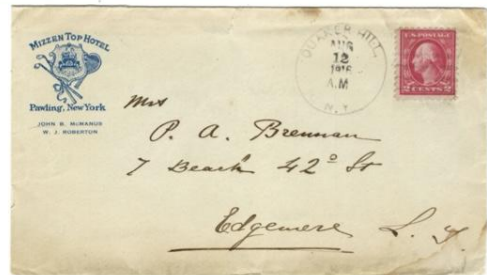 MIZZEN TOP HOTEL
Pawling, New York
JOHN B. McMANUS
W. J. ROBERTON
QUAKER HILL,
AUG
12
1916
A.M
N.Y.
U.S. POSTAGE
2 CENTS 2
Mrs
P. A. Brennan
7 Beach 42° St
Edgemere L. I.